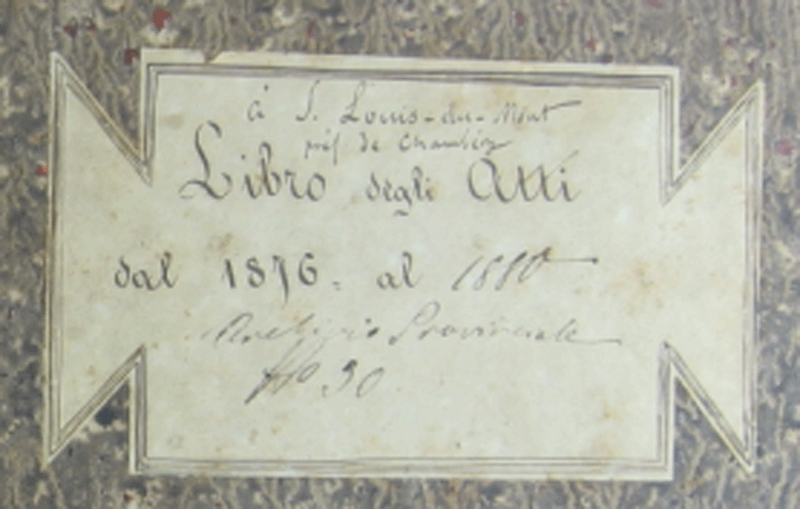 à S. Louis-du-Mont
près de Chambéry
Libro degli Atti
dal 1876. al 1880
Archivio Provinciale
No 30